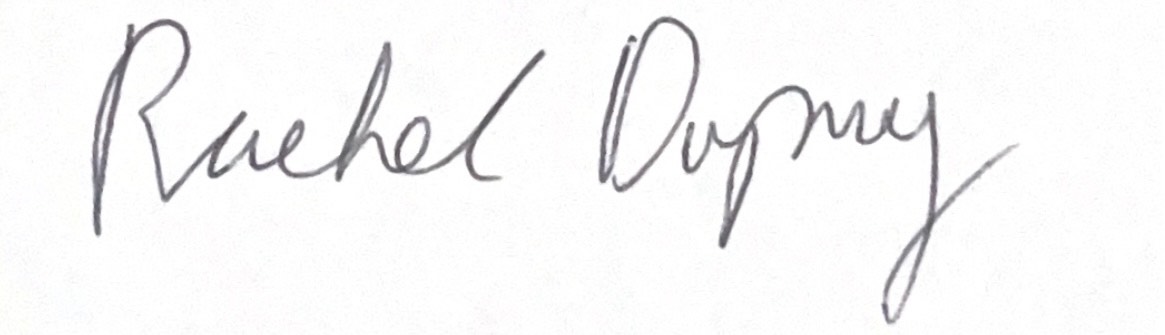 Rachel Dupuy